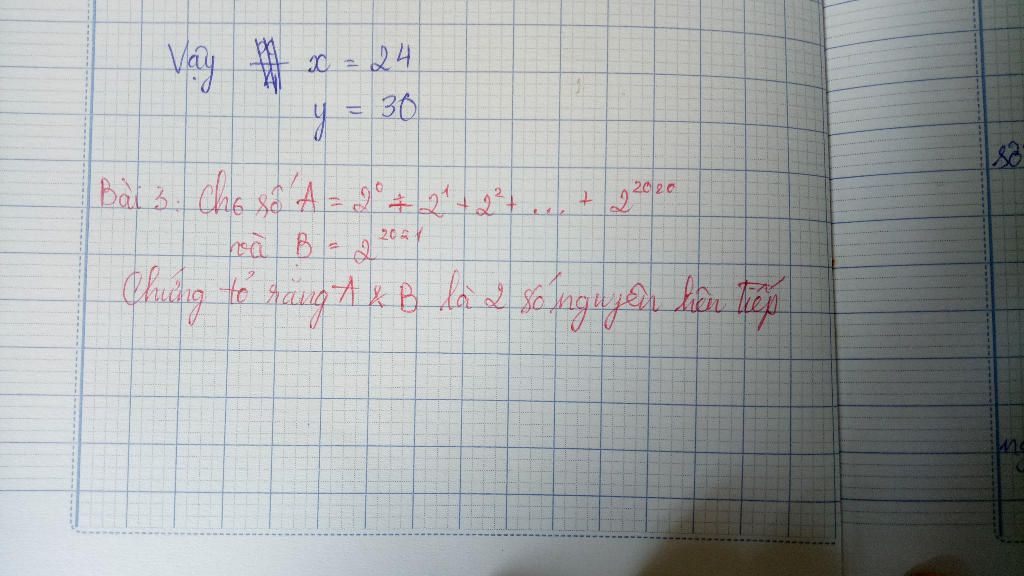 Vậy x = 24
y = 30
Bài 3: Cho số A = 2⁰ + 2¹ + 2² + ... + 2²⁰²⁰
và B = 2²⁰²¹
Chứng tỏ rằng A & B là 2 số nguyên liên tiếp
số